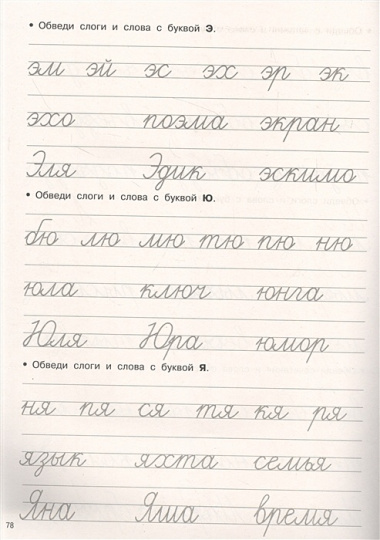 • Обведи слоги и слова с буквой Э.
эм эй эс эх эр эк
эхо поэма экран
Эля Эдик эскимо
• Обведи слоги и слова с буквой Ю.
бю лю мю тю пю ню
юла ключ юнга
Юля Юра юмор
• Обведи слоги и слова с буквой Я.
ня пя ся тя кя ря
язык яхта семья
Яна Яша время
78